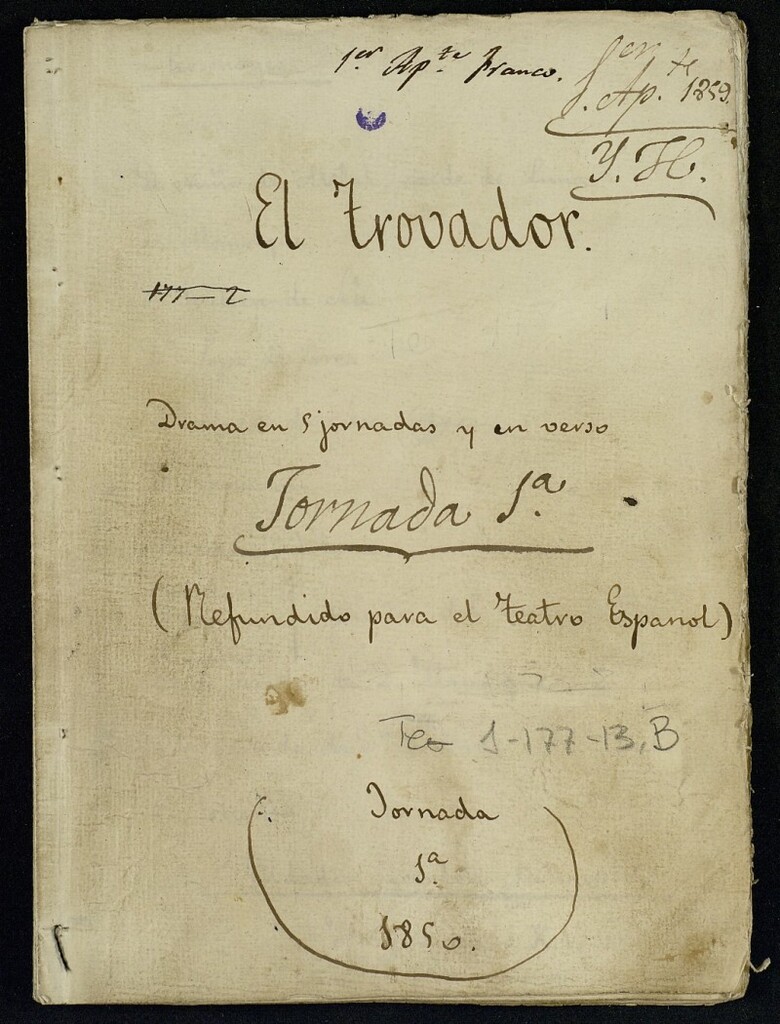 1.er Ap.te Franco.
1.er Ap.te 1859.
Y. H.
El Trovador.
177-2
Drama en 5 jornadas y en verso
Jornada 1.a
(Refundido para el Teatro Espanol)
Tea 1-177-13, B
Jornada
1.a
1850.